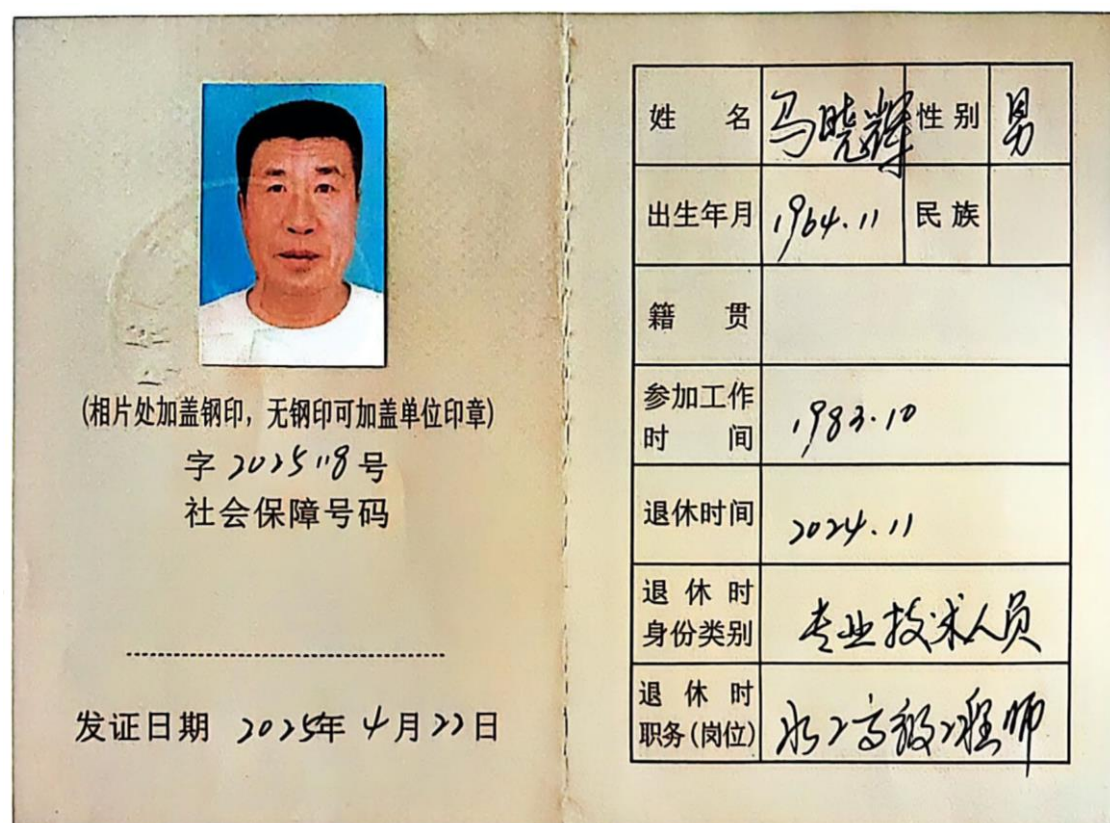 (相片处加盖钢印，无钢印可加盖单位印章)
字 2025118 号
社会保障号码
发证日期 2025年 4月22日
姓 名 马晓辉 性别 男
出生年月 1964.11 民族
籍 贯
参加工作时 间 1983.10
退休时间 2024.11
退 休 时身份类别 专业技术人员
退 休 时职务(岗位) 水工高级工程师